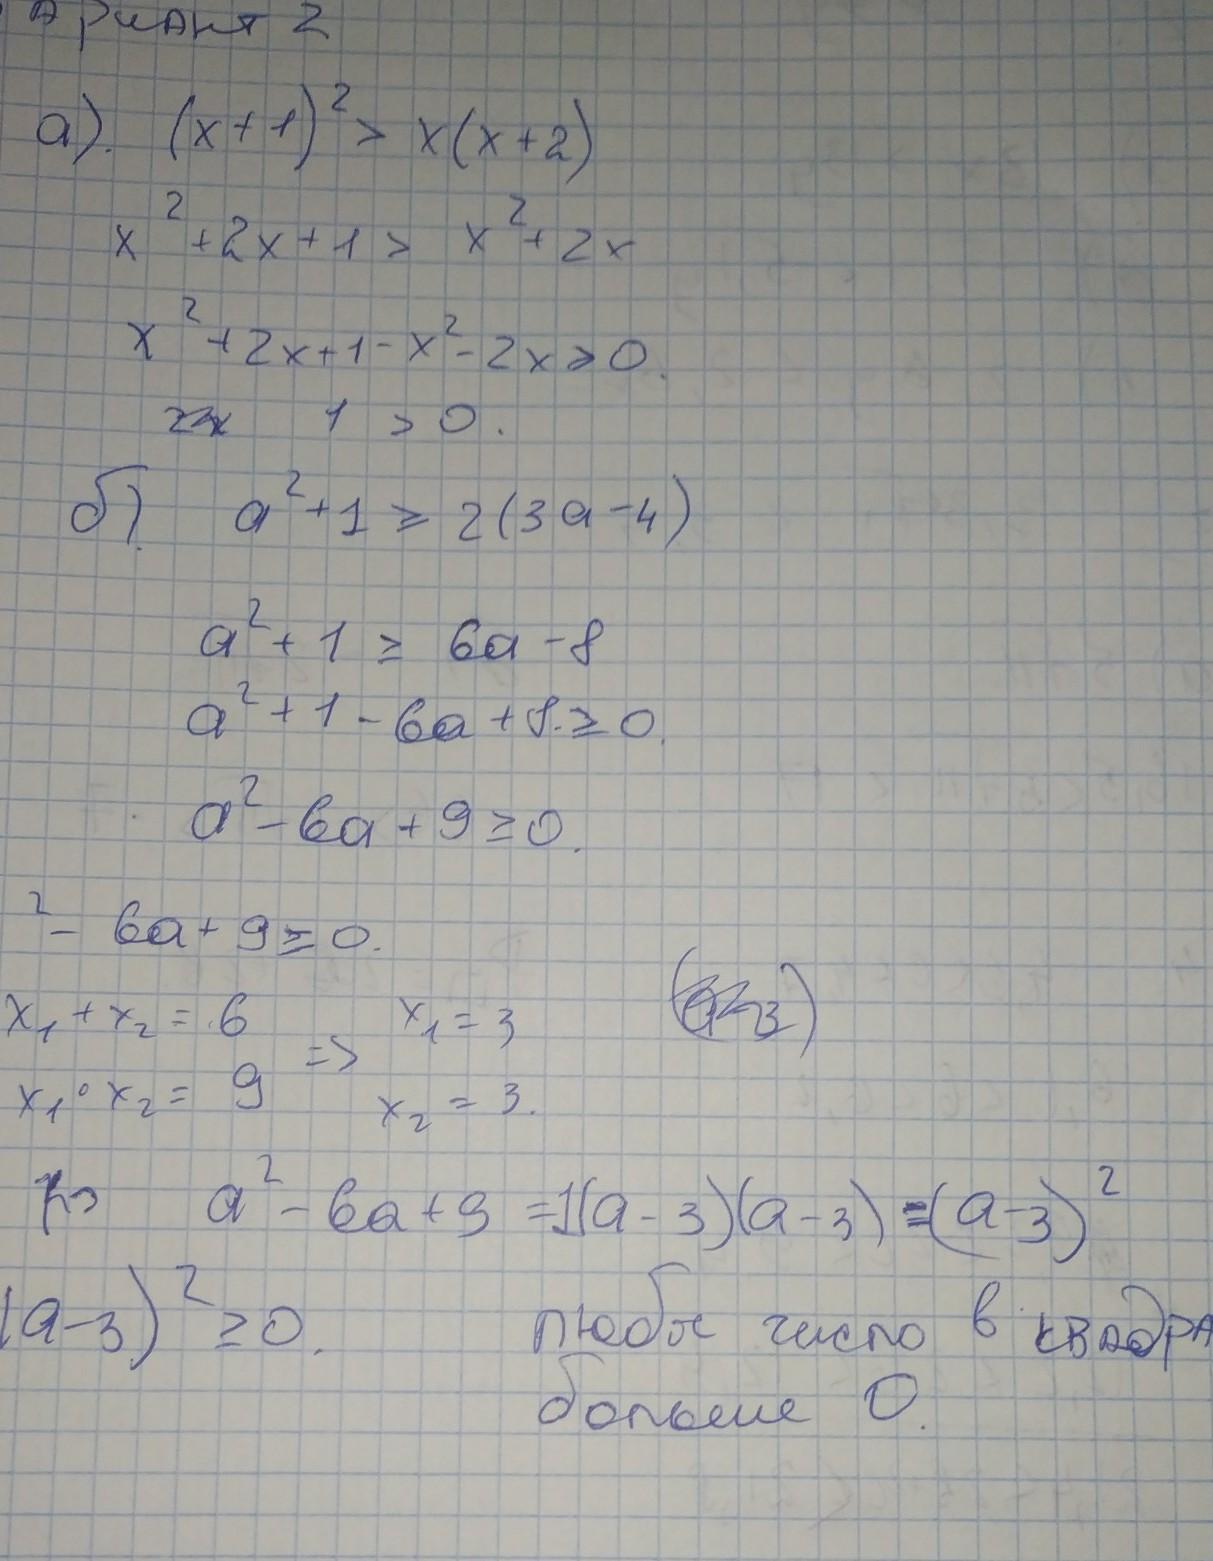 ариант 2
а). (x+1)² > x(x+2)
x²+2x+1 > x²+2x
x²+2x+1-x²-2x > 0.
1 > 0.
б) a²+1 ≥ 2(3a-4)
a²+1 ≥ 6a-8
a²+1-6a+8 ≥ 0.
a²-6a+9 ≥ 0.
²- 6a+9 ≥ 0.
x₁+x₂ = 6 => x₁ = 3
x₁·x₂ = 9 x₂ = 3.
a²-6a+9 = 1(a-3)(a-3) = (a-3)²
(a-3)² ≥ 0. любое число в квадра
больше 0.